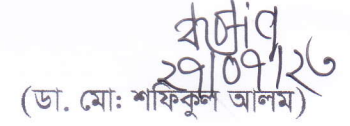 ২৭|০৭|২৩
(ডা. মোঃ শফিকুল আলম)